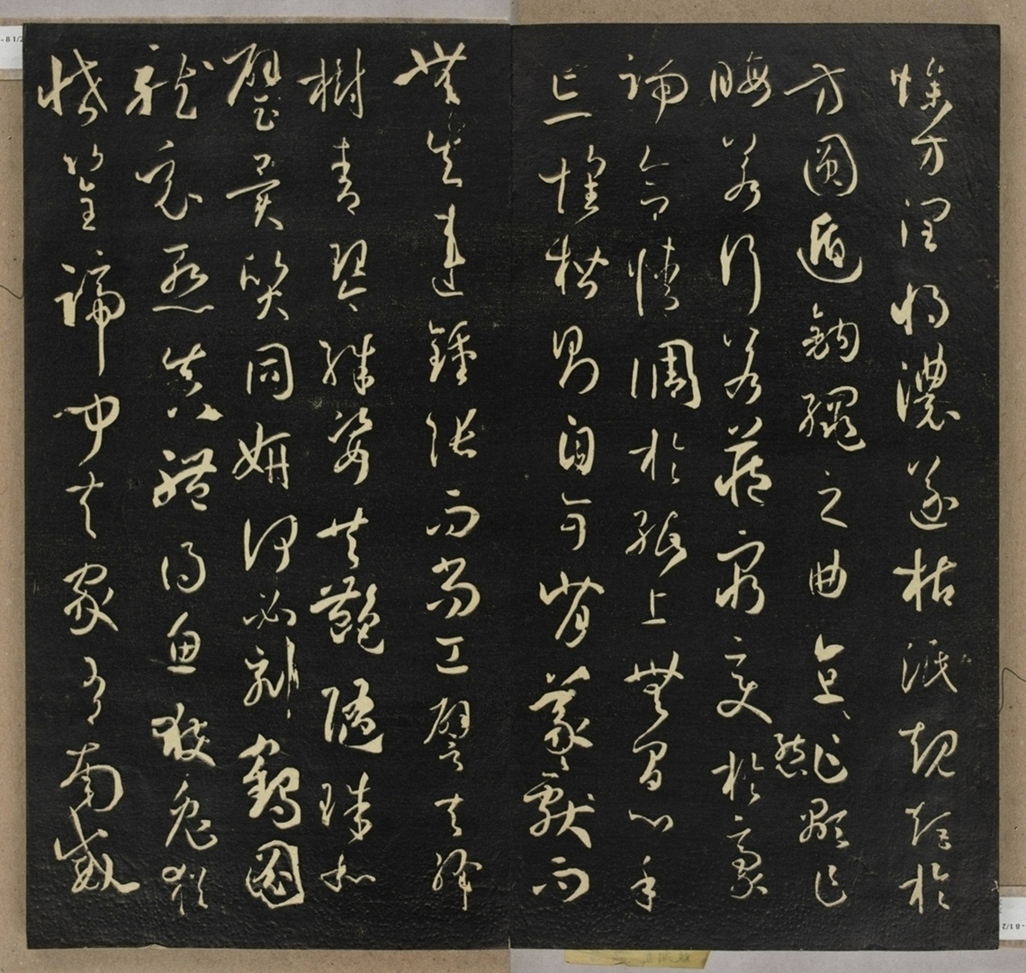 燥方潤將濃遂枯泯規矩於
方圓遁鉤繩之曲直乍顯乍
晦若行若藏窮變態於豪
端合情調於紙上無間心手
忘懷楷則自可背羲獻而
無失違鍾張而尚工譬夫絳
樹青琴殊姿共艷隨珠和
璧異質同妍何必刻鶴圖
龍竟慚真體得魚獲兔猶
恡筌蹄聞夫家有南威